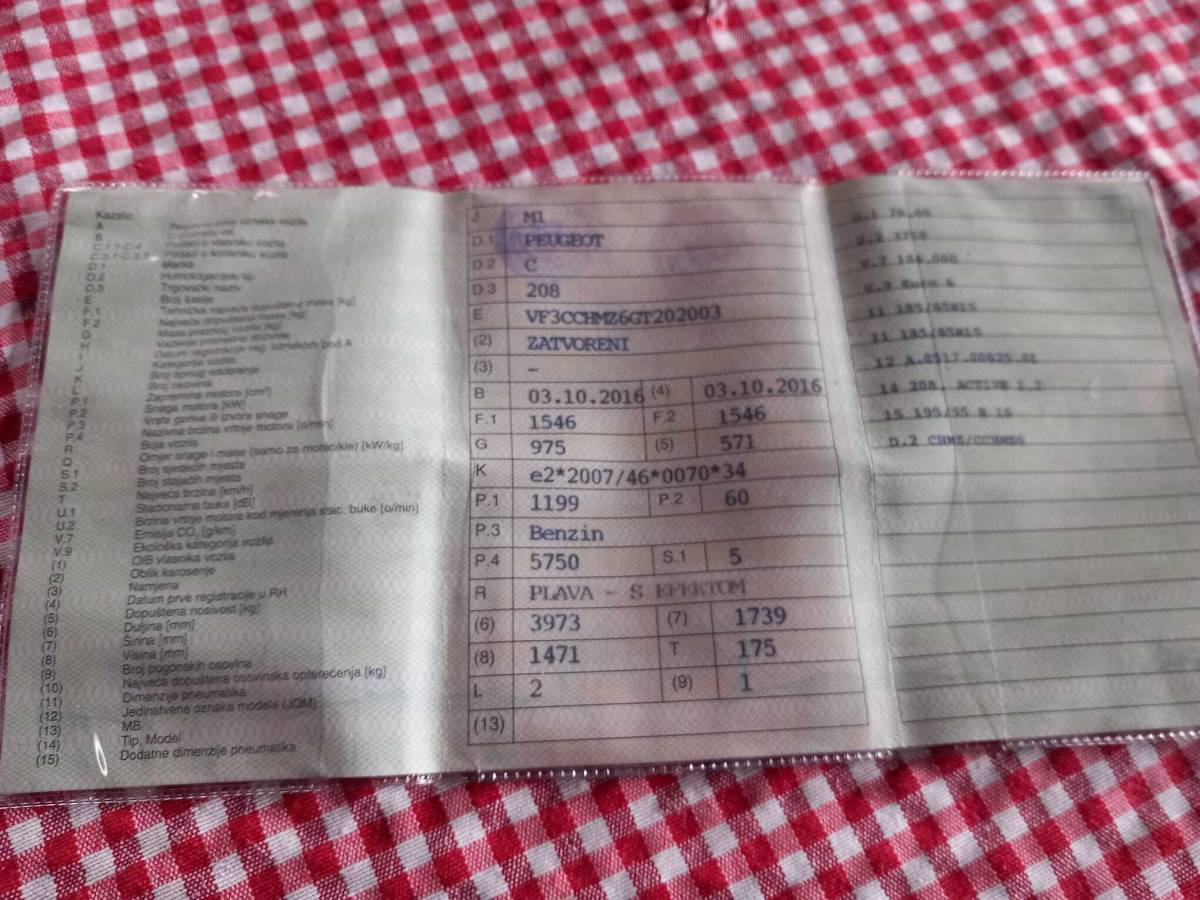 Kazalo:
A Registarska oznaka vozila
B
C.1.1-C.4 Podaci o vlasniku vozila
C.3.1-C.3.3 Podaci o korisniku vozila
D.1 Marka
D.2 Homologacijski tip
D.3 Trgovački naziv
E Broj šasije
F.1 Tehnička najveća dopuštena masa [kg]
F.2 Najveća dopuštena masa [kg]
G Masa praznog vozila [kg]
H Važenje prometne dozvole
I Datum registracije reg. oznakom pod A
J Kategorija vozila
K Broj tipnog odobrenja
L Broj osovina
P.1 Zapremina motora [cm³]
P.2 Snaga motora [kW]
P.3 Vrsta goriva ili izvora snage
P.4 Nazivna brzina vrtnje motora [o/min]
R Boja vozila
Q Omjer snage i mase (samo za motocikle) [kW/kg]
S.1 Broj sjedećih mjesta
S.2 Broj stajaćih mjesta
T Najveća brzina [km/h]
U.1 Stacionarna buka [dB]
U.2 Brzina vrtnje motora kod mjerenja stac. buke [o/min]
V.7 Emisija CO₂ [g/km]
V.9 Ekološka kategorija vozila
(1) OIB vlasnika vozila
(2) Oblik karoserije
(3) Namjena
(4) Datum prve registracije u RH
(5) Dopuštena nosivost [kg]
(6) Duljina [mm]
(7) Širina [mm]
(8) Visina [mm]
(9) Broj pogonskih osovina
(10) Najveća dopuštena osovinska opterećenja [kg]
(11) Dimenzije pneumatika
(12) Jedinstvena oznaka modela (JOM)
(13) MB
(14) Tip, Model
(15) Dodatne dimenzije pneumatika
J M1
D.1 PEUGEOT
D.2 C
D.3 208
E VF3CCHMZ6GT202003
(2) ZATVORENI
(3) –
B 03.10.2016 (4) 03.10.2016
F.1 1546 F.2 1546
G 975 (5) 571
K e2*2007/46*0070*34
P.1 1199 P.2 60
P.3 Benzin
P.4 5750 S.1 5
R PLAVA - S EFEKTOM
(6) 3973 (7) 1739
(8) 1471 T 175
L 2 (9) 1
(13)
U.1 76,00
U.2 3750
V.7 104,000
V.9 Euro 6
11 185/65R15
11 185/65R15
14 208, ACTIVE 1.2
15 195/55 R 16
D.2 CHMZ/CCHMZ6